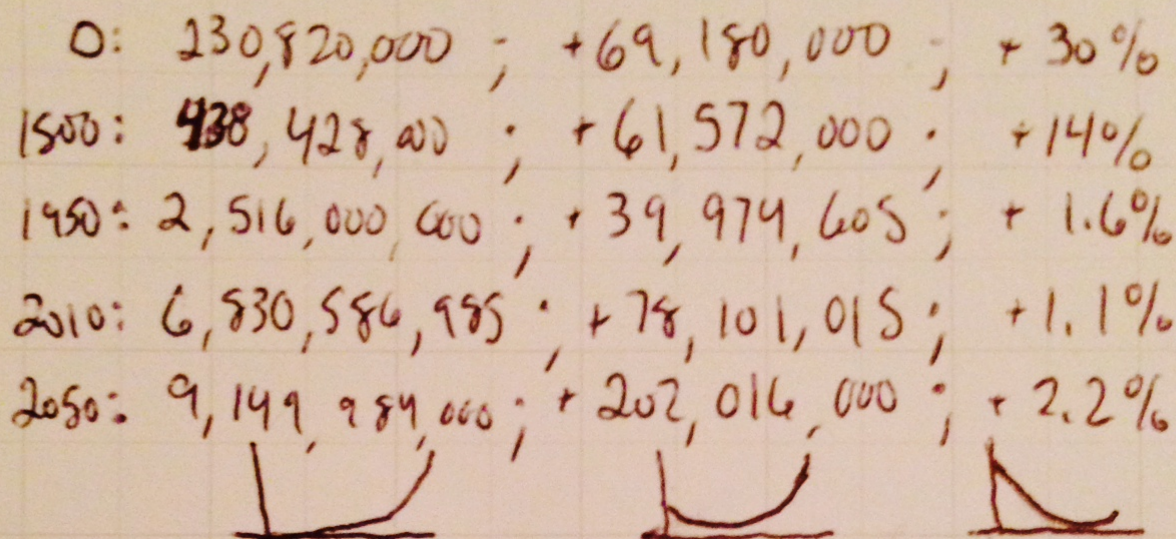 0: 230,820,000 ; +69,180,000 ; + 30%
1500: 438,428,000 ; +61,572,000 ; +14%
1950: 2,516,000,000 ; + 39,974,605 ; + 1.6%
2010: 6,830,586,985 ; + 78,101,015 ; +1.1%
2050: 9,149,984,000 ; + 202,016,000 ; + 2.2%